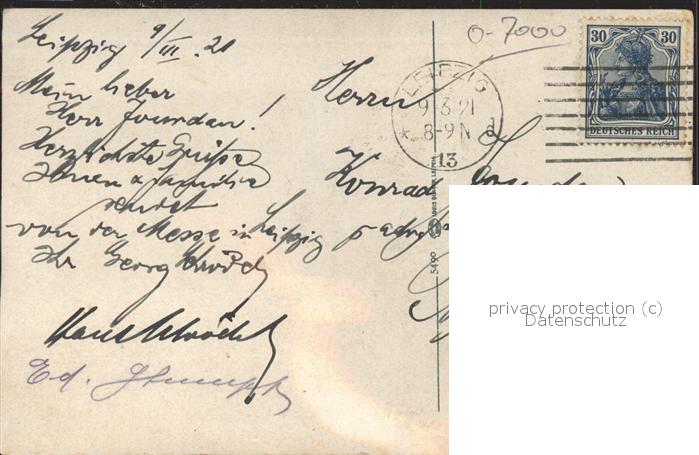 Leipzig 9/III. 21
Mein lieber
Herr Jourdan!
Herzlichste Grüße
Ihnen & Familie
sendet
von der Messe in Leipzig
Ihr Georg
Hans
Ed. Stumpf
0-7000
Herrn
Konrad
LEIPZIG
9.3.21
* 8-9 N d
13
30 30
DEUTSCHES REICH
5490
privacy protection (c)
Datenschutz